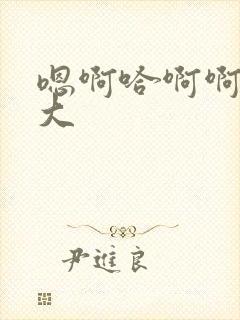 嗯啊哈啊啊
大
尹進良